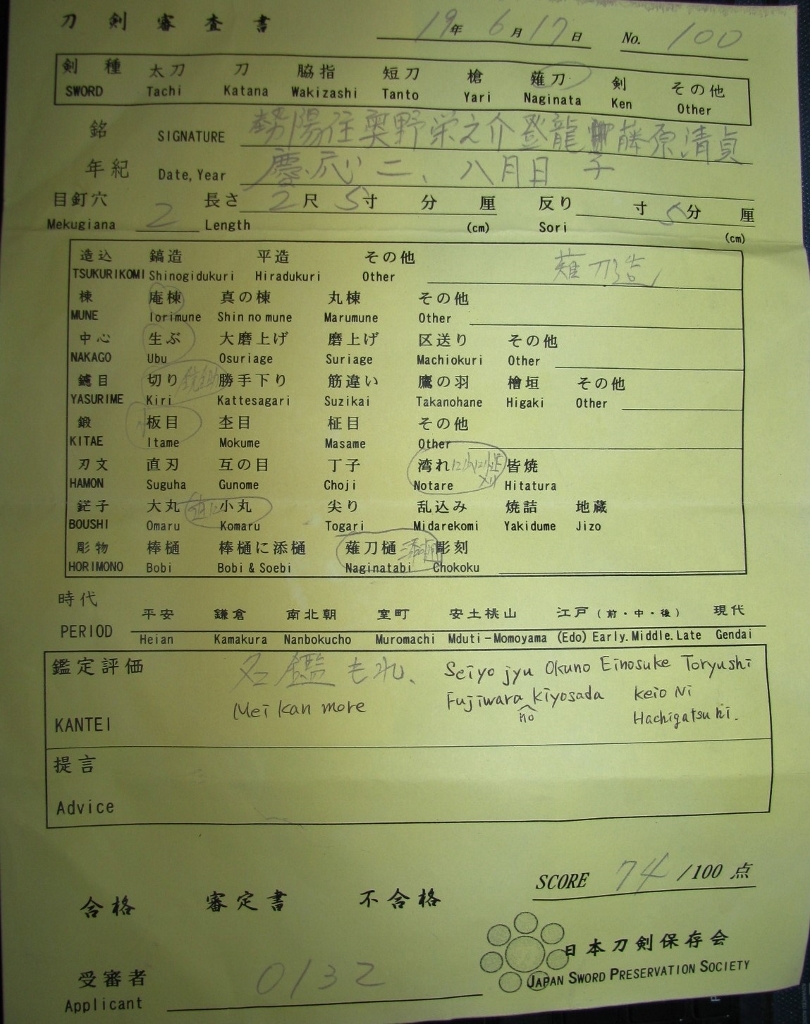 刀剣審査書 19年6月17日 No. 100
剣種 太刀 刀 脇指 短刀 槍 薙刀 剣 その他
SWORD Tachi Katana Wakizashi Tanto Yari Naginata Ken Other
銘 SIGNATURE 勢陽住奥野栄之介登龍 藤原清貞
年紀 Date, Year 慶応二、八月日
目釘穴 2 長さ 2尺5寸 分 厘 反り 寸 5分 厘
Mekugiana Length (cm) Sori (cm)
造込 鎬造 平造 その他 薙刀造
TSUKURIKOMI Shinogidukuri Hiradukuri Other
棟 庵棟 真の棟 丸棟 その他
MUNE Iorimune Shin no mune Marumune Other
中心 生ぶ 大磨上げ 磨上げ 区送り その他
NAKAGO Ubu Osuriage Suriage Machiokuri Other
鑢目 切り 勝手下り 筋違い 鷹の羽 檜垣 その他
YASURIME Kiri Kattesagari Suzikai Takanohane Higaki Other
鍛 板目 杢目 柾目 その他
KITAE Itame Mokume Masame Other
刃文 直刃 互の目 丁子 湾れ 皆焼
HAMON Suguha Gunome Choji Notare Hitatura
鋩子 大丸 小丸 尖り 乱込み 焼詰 地蔵
BOUSHI Omaru Komaru Togari Midarekomi Yakidume Jizo
彫物 棒樋 棒樋に添樋 薙刀樋 彫刻
HORIMONO Bobi Bobi & Soebi Naginatabi Chokoku
時代 平安 鎌倉 南北朝 室町 安土桃山 江戸(前・中・後) 現代
PERIOD Heian Kamakura Nanbokucho Muromachi Mduti-Momoyama (Edo) Early. Middle. Late Gendai
鑑定評価 名鑑もれ、 Seiyo jyu Okuno Einosuke Toryushi
KANTEI Mei Kan more Fujiwara no Kiyosada Keio Ni
Hachigatsu hi.
提言
Advice
合格 審定書 不合格 SCORE 74/100点
日本刀剣保存会
JAPAN SWORD PRESERVATION SOCIETY
受審者 0132
Applicant